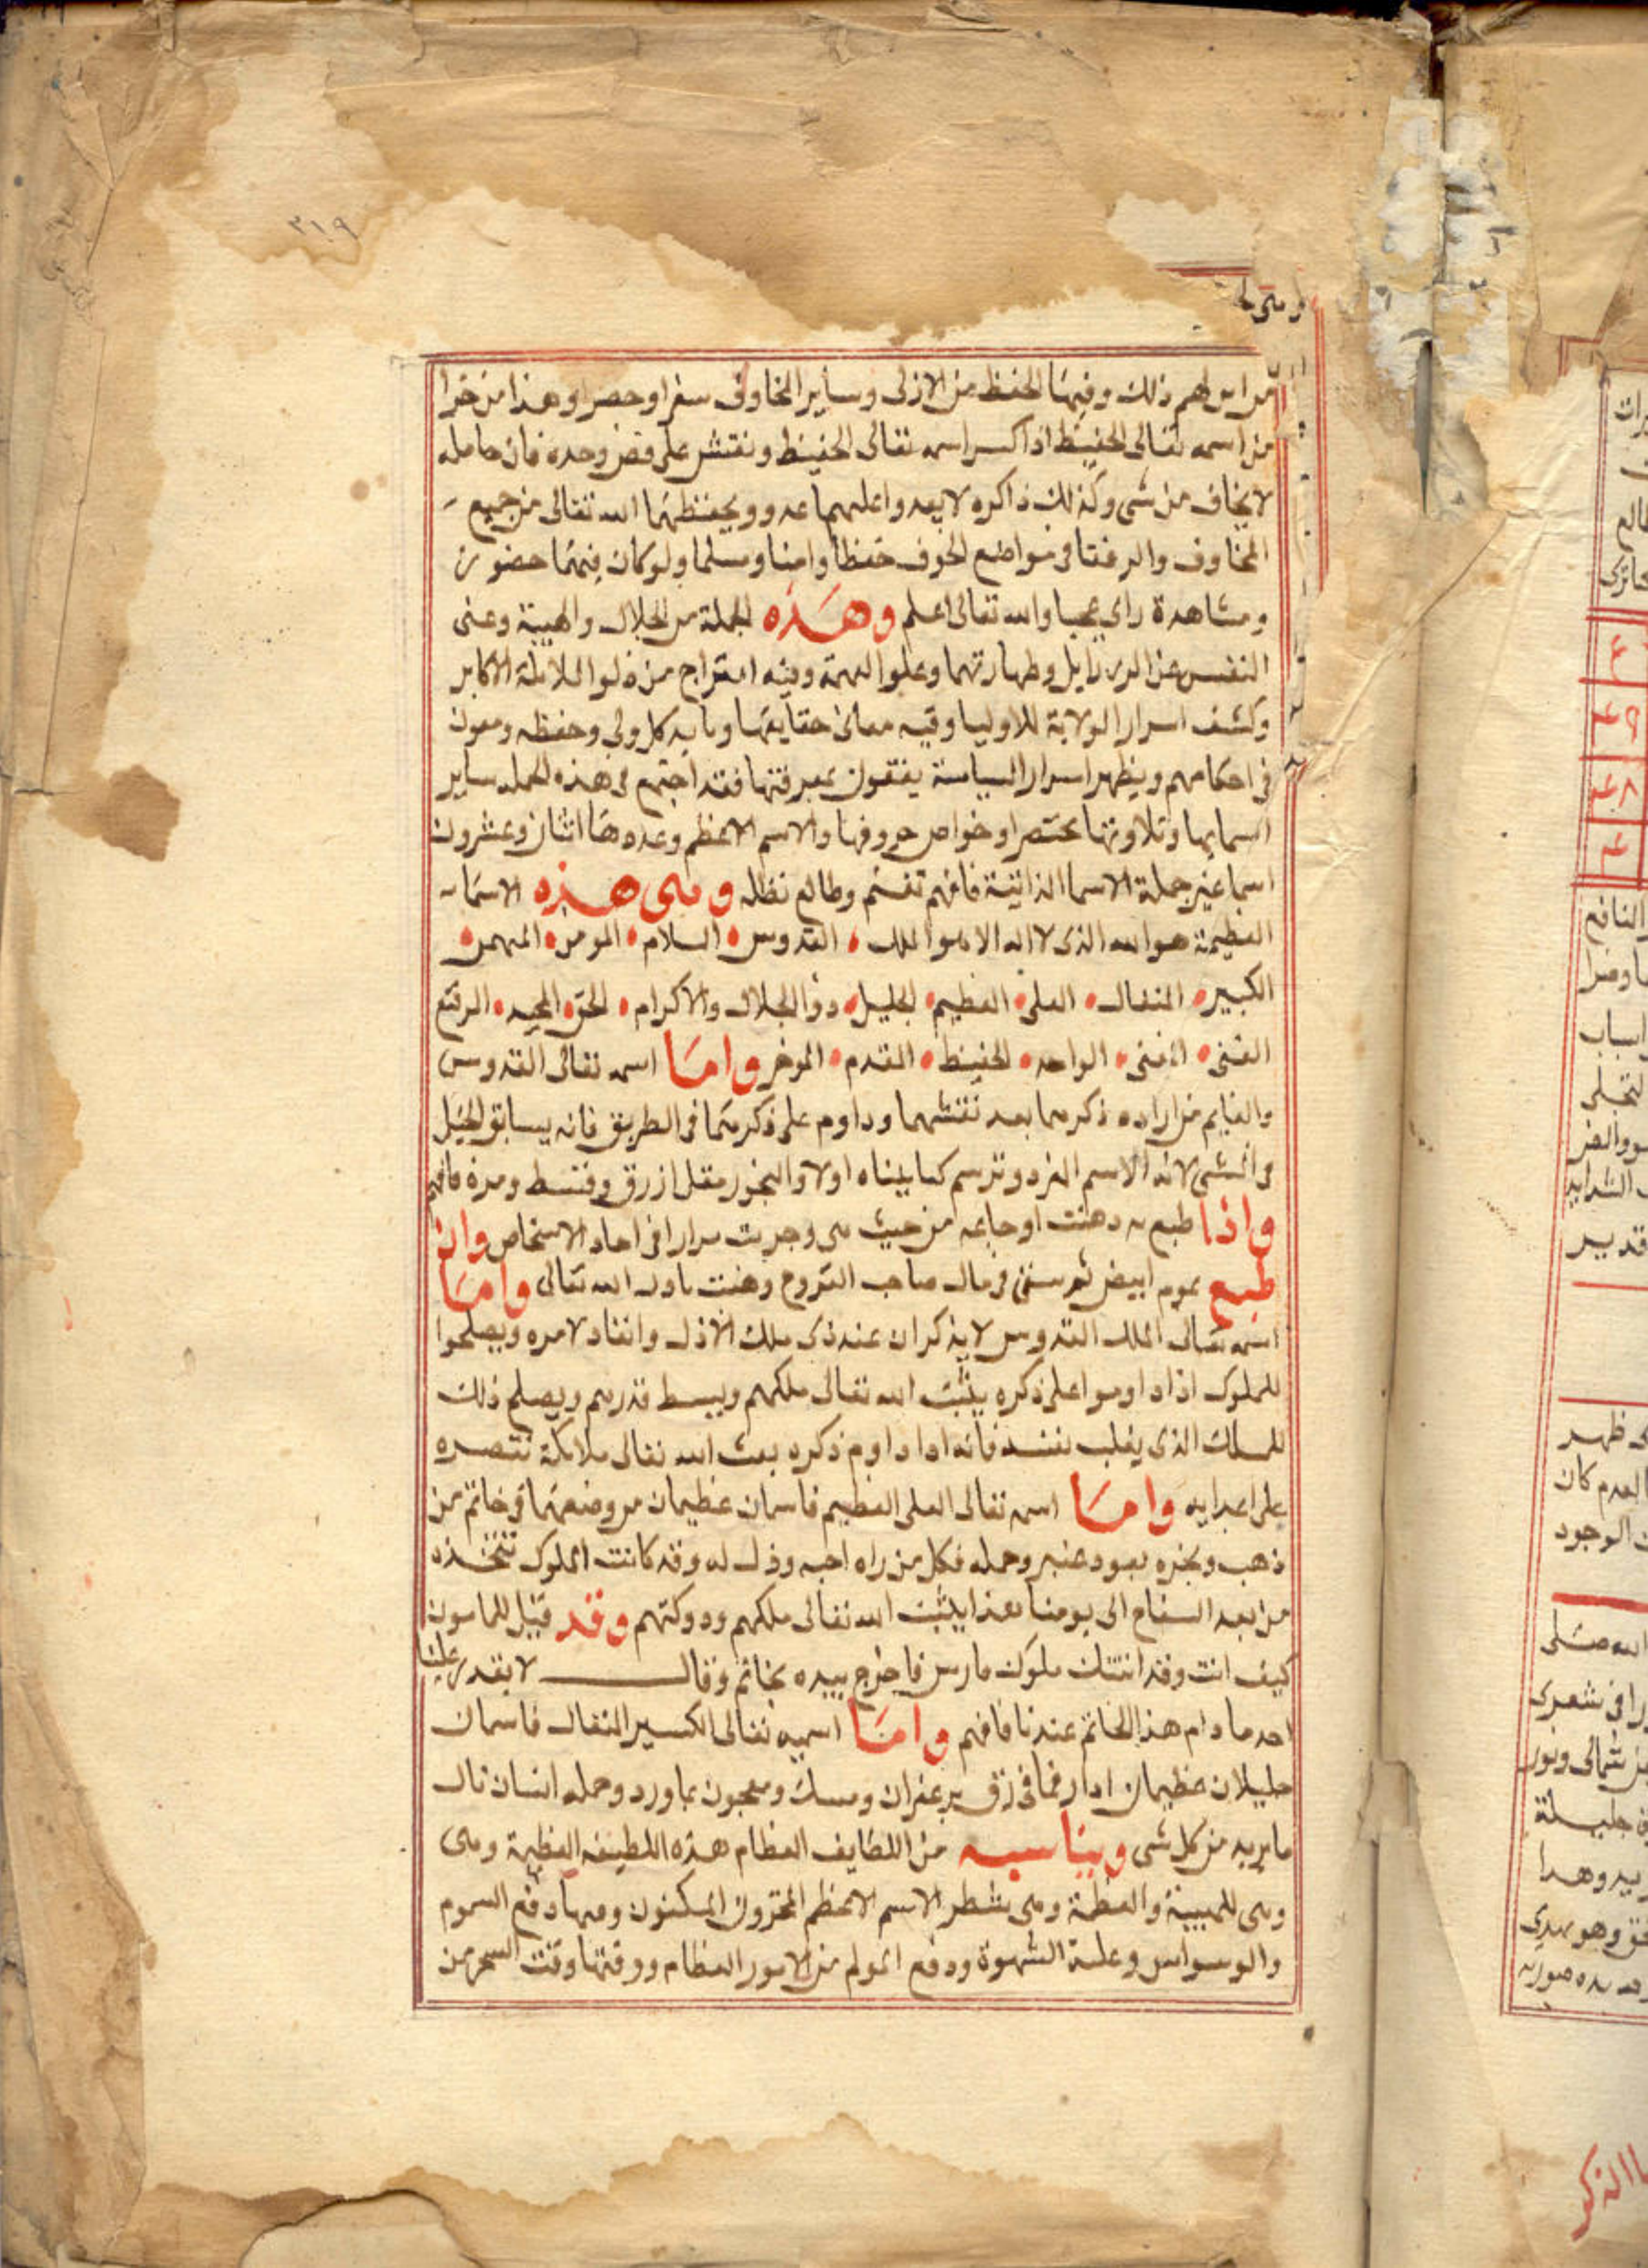 ٣١٩
من ابو لهم ذلك وفيها الحفظ من الازلى وساير المخاوف سفرا وحضرا وهذا من خوا
من اسمه تعالى الحفيظ اذا كسر اسمه تعالى الحفيظ ونقش على فص وحده فان حامله
لا يخاف من شى وكذلك ذاكره لا يعدوا عليهما عدو ويحفظهما الله تعالى من جميع
المخاوف والرعنا فى مواضع الخوف حفظا وامنا وسلما ولو كان فيهما حضور
ومشاهدة راى عجبا والله تعالى اعلم وهذه الجملة من الجلال والهيبة وغنى
النفس عن الرذايل وطهارتهما وعلوا الهمة وفيه امتزاج من ذلوا الملايكة الاكابر
وكشف اسرار الولاية للاوليا وفيه معانى حقايقها وما به كل ولى وحفظه ومعون
فى احكامهم ويظهر اسرار السياسة يفقون بمعرفتها فقد اجتمع فى هذه الجمله ساير
اسمايها وتلاوتها مختصرا وخواص حروفها والاسم الاعظم وعددها اثنان وعشرون
اسما غير جملة الاسما الذاتية فافهم تغنم وطالع نظله وهى هذه الاسما
العظيمة هو الله الذى لا اله الا هو الملك القدوس السلام المومن المهيمن
الكبير المتعال العلى العظيم الجليل ذو الجلال والاكرام الحق المجيد الرفيع
الغنى المغنى الواحد الحفيظ المقدم الموخر واما اسمه تعالى القدوس
والقايم من اراده ذكرهما بعد نقشهما وداوم على ذكرهما فى الطريق فانه يسابق الخيل
فى المشى لانه الاسم الفرد وترسم كما بيناه اولا والبخور مقل ازرق وقسط ومرة فافهم
واذا طبع به دهنت اوجاعه من حيث هى وجربت مرارا فى احاد الاشخاص وان
طبع بموم ابيض ثم سقى فى مال صاحب القروح وهنت باذن الله تعالى واما
اسمه تعالى الملك القدوس لا يذكران عند ذى ملك الا ذل وانقاد لامره ويصلحوا
للملوك اذا داوموا على ذكره يثبت الله تعالى ملكهم ويبسط قدرهم ويصلح ذلك
للملك الذى يغلب نفسه فانه اذا داوم ذكره بعث الله تعالى ملايكة تنصره
على اعدايه واما اسمه تعالى العلى العظيم فاسمان عظيمان من وضعهما فى خاتم من
ذهب وبخره بعود عنبر وحمله فكل من راه احبه وذل له وقد كانت الملوك تتخذه
من بعد السفاح الى يومنا هذا يثبت الله تعالى ملكهم ودولتهم وقد قيل للمامون
كيف انت وقد انتقلت ملوك فارس فاخرج بيده بخاتم وقال لا يقدر علينا
احد ما دام هذا الخاتم عندنا فافهم واما اسميه تعالى الكبير المتعال فاسمان
جليلان عظيمان اذا رقما فى رق بزعفران ومسك ومعجون بماورد وحمله انسان نال
ما يريد من كل شى ويناسبه من اللطايف العظام هذه اللطيفة العظيمة وهى
وهى للهيبة والعظمة وهى بشطر الاسم الاعظم المخزون المكنون ومنها دفع السموم
والوسواس وغلبة الشهوة ودفع المولم من الامور العظام ووقتها وقت السحر من